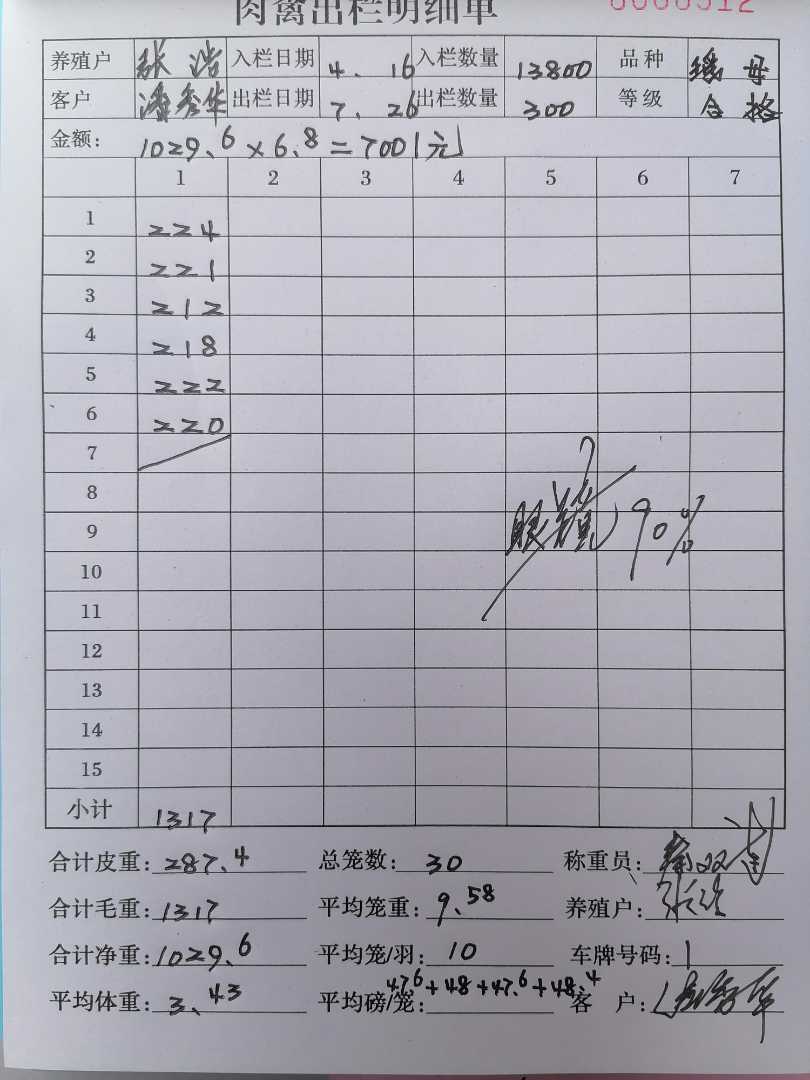 肉禽出栏明细单
养殖户 张浩 入栏日期 4.16 入栏数量 13800 品种 母
客户 潘秀华 出栏日期 7.26 出栏数量 300 等级 合格
金额: 1029.6×6.8=7001元
1 2 3 4 5 6 7
1 224
2 221
3 212
4 218
5 222
6 220
7
8
9 眼 90%
10
11
12
13
14
15
小计 1317
合计皮重: 287.4 总笼数: 30 称重员:
合计毛重: 1317 平均笼重: 9.58 养殖户: 张浩
合计净重: 1029.6 平均笼/羽: 10 车牌号码: 1
平均体重: 3.43 平均磅/笼: 47.6+48+47.6+48.4 客 户: 潘秀华